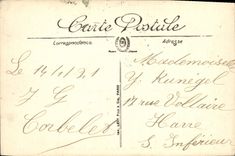 Carte Postale
Correspondance
Adresse
Le 14/1/21
J G
Corbelet
Mademoiselle
Y. Kunégel
17 rue Voltaire
Havre
S. Inférieure